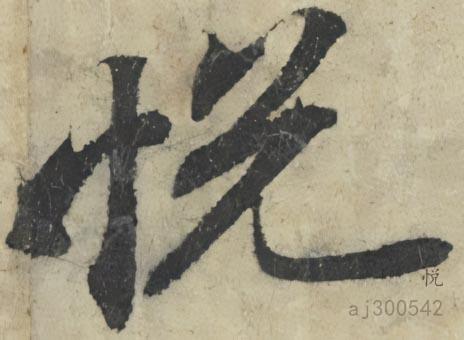 悦
悦
aj300542